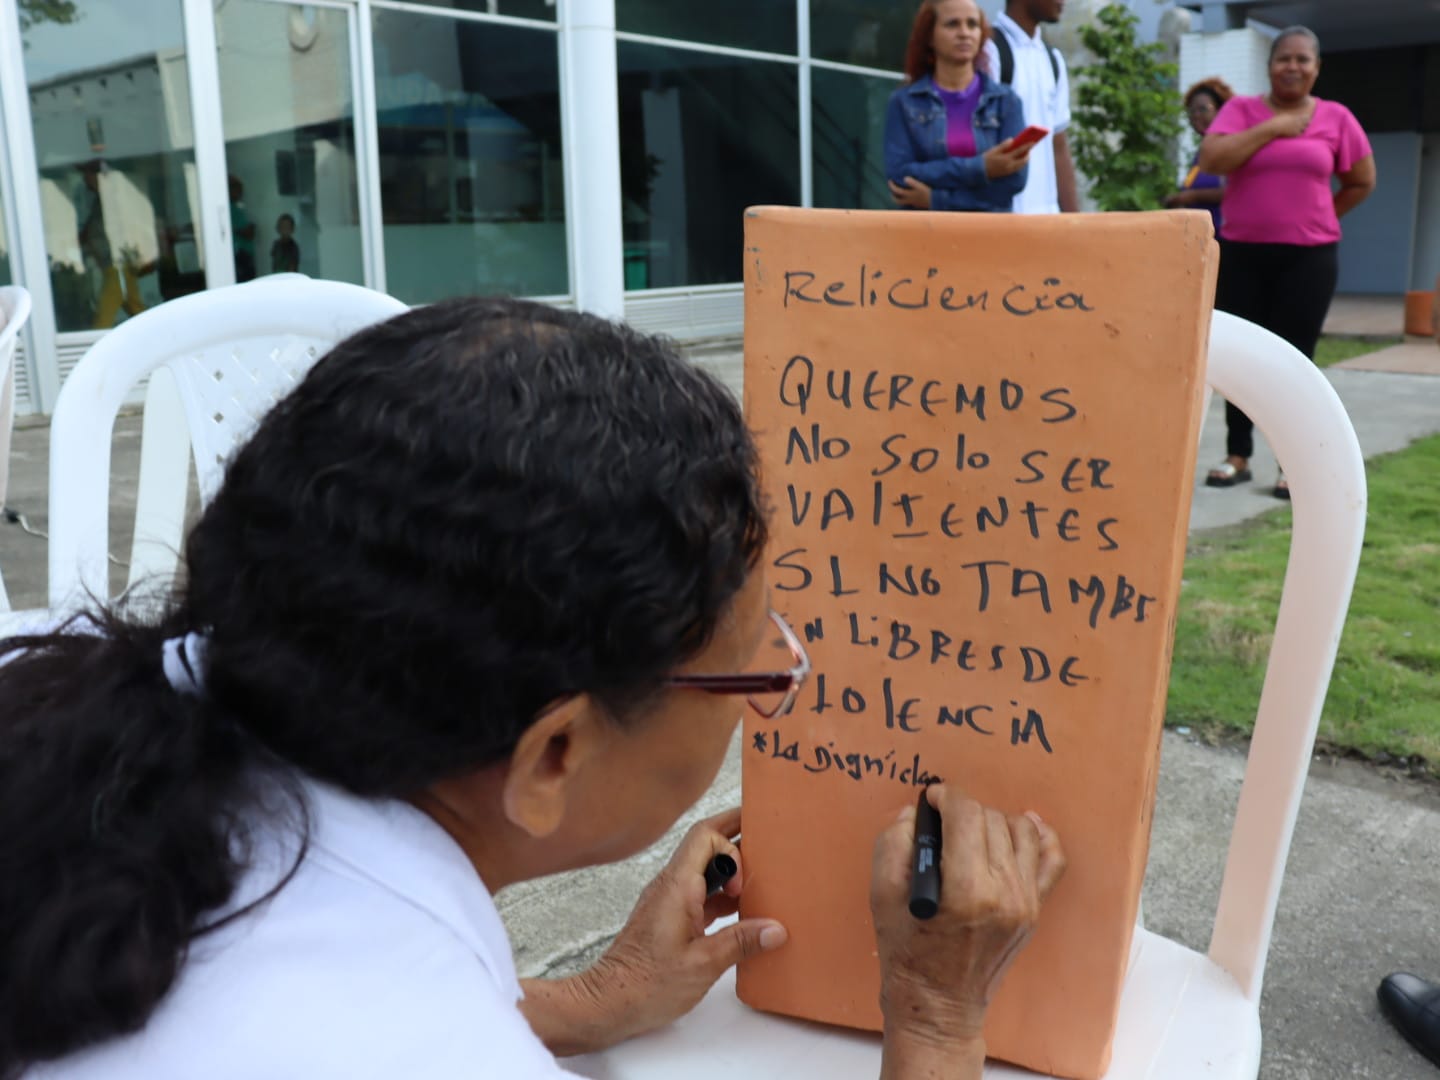 Reliciencia
QUEREMOS
No Solo SER
VALIENTES
SINO TAMBE
EN LiBRES DE
VIOlENCiA
*La Dignida